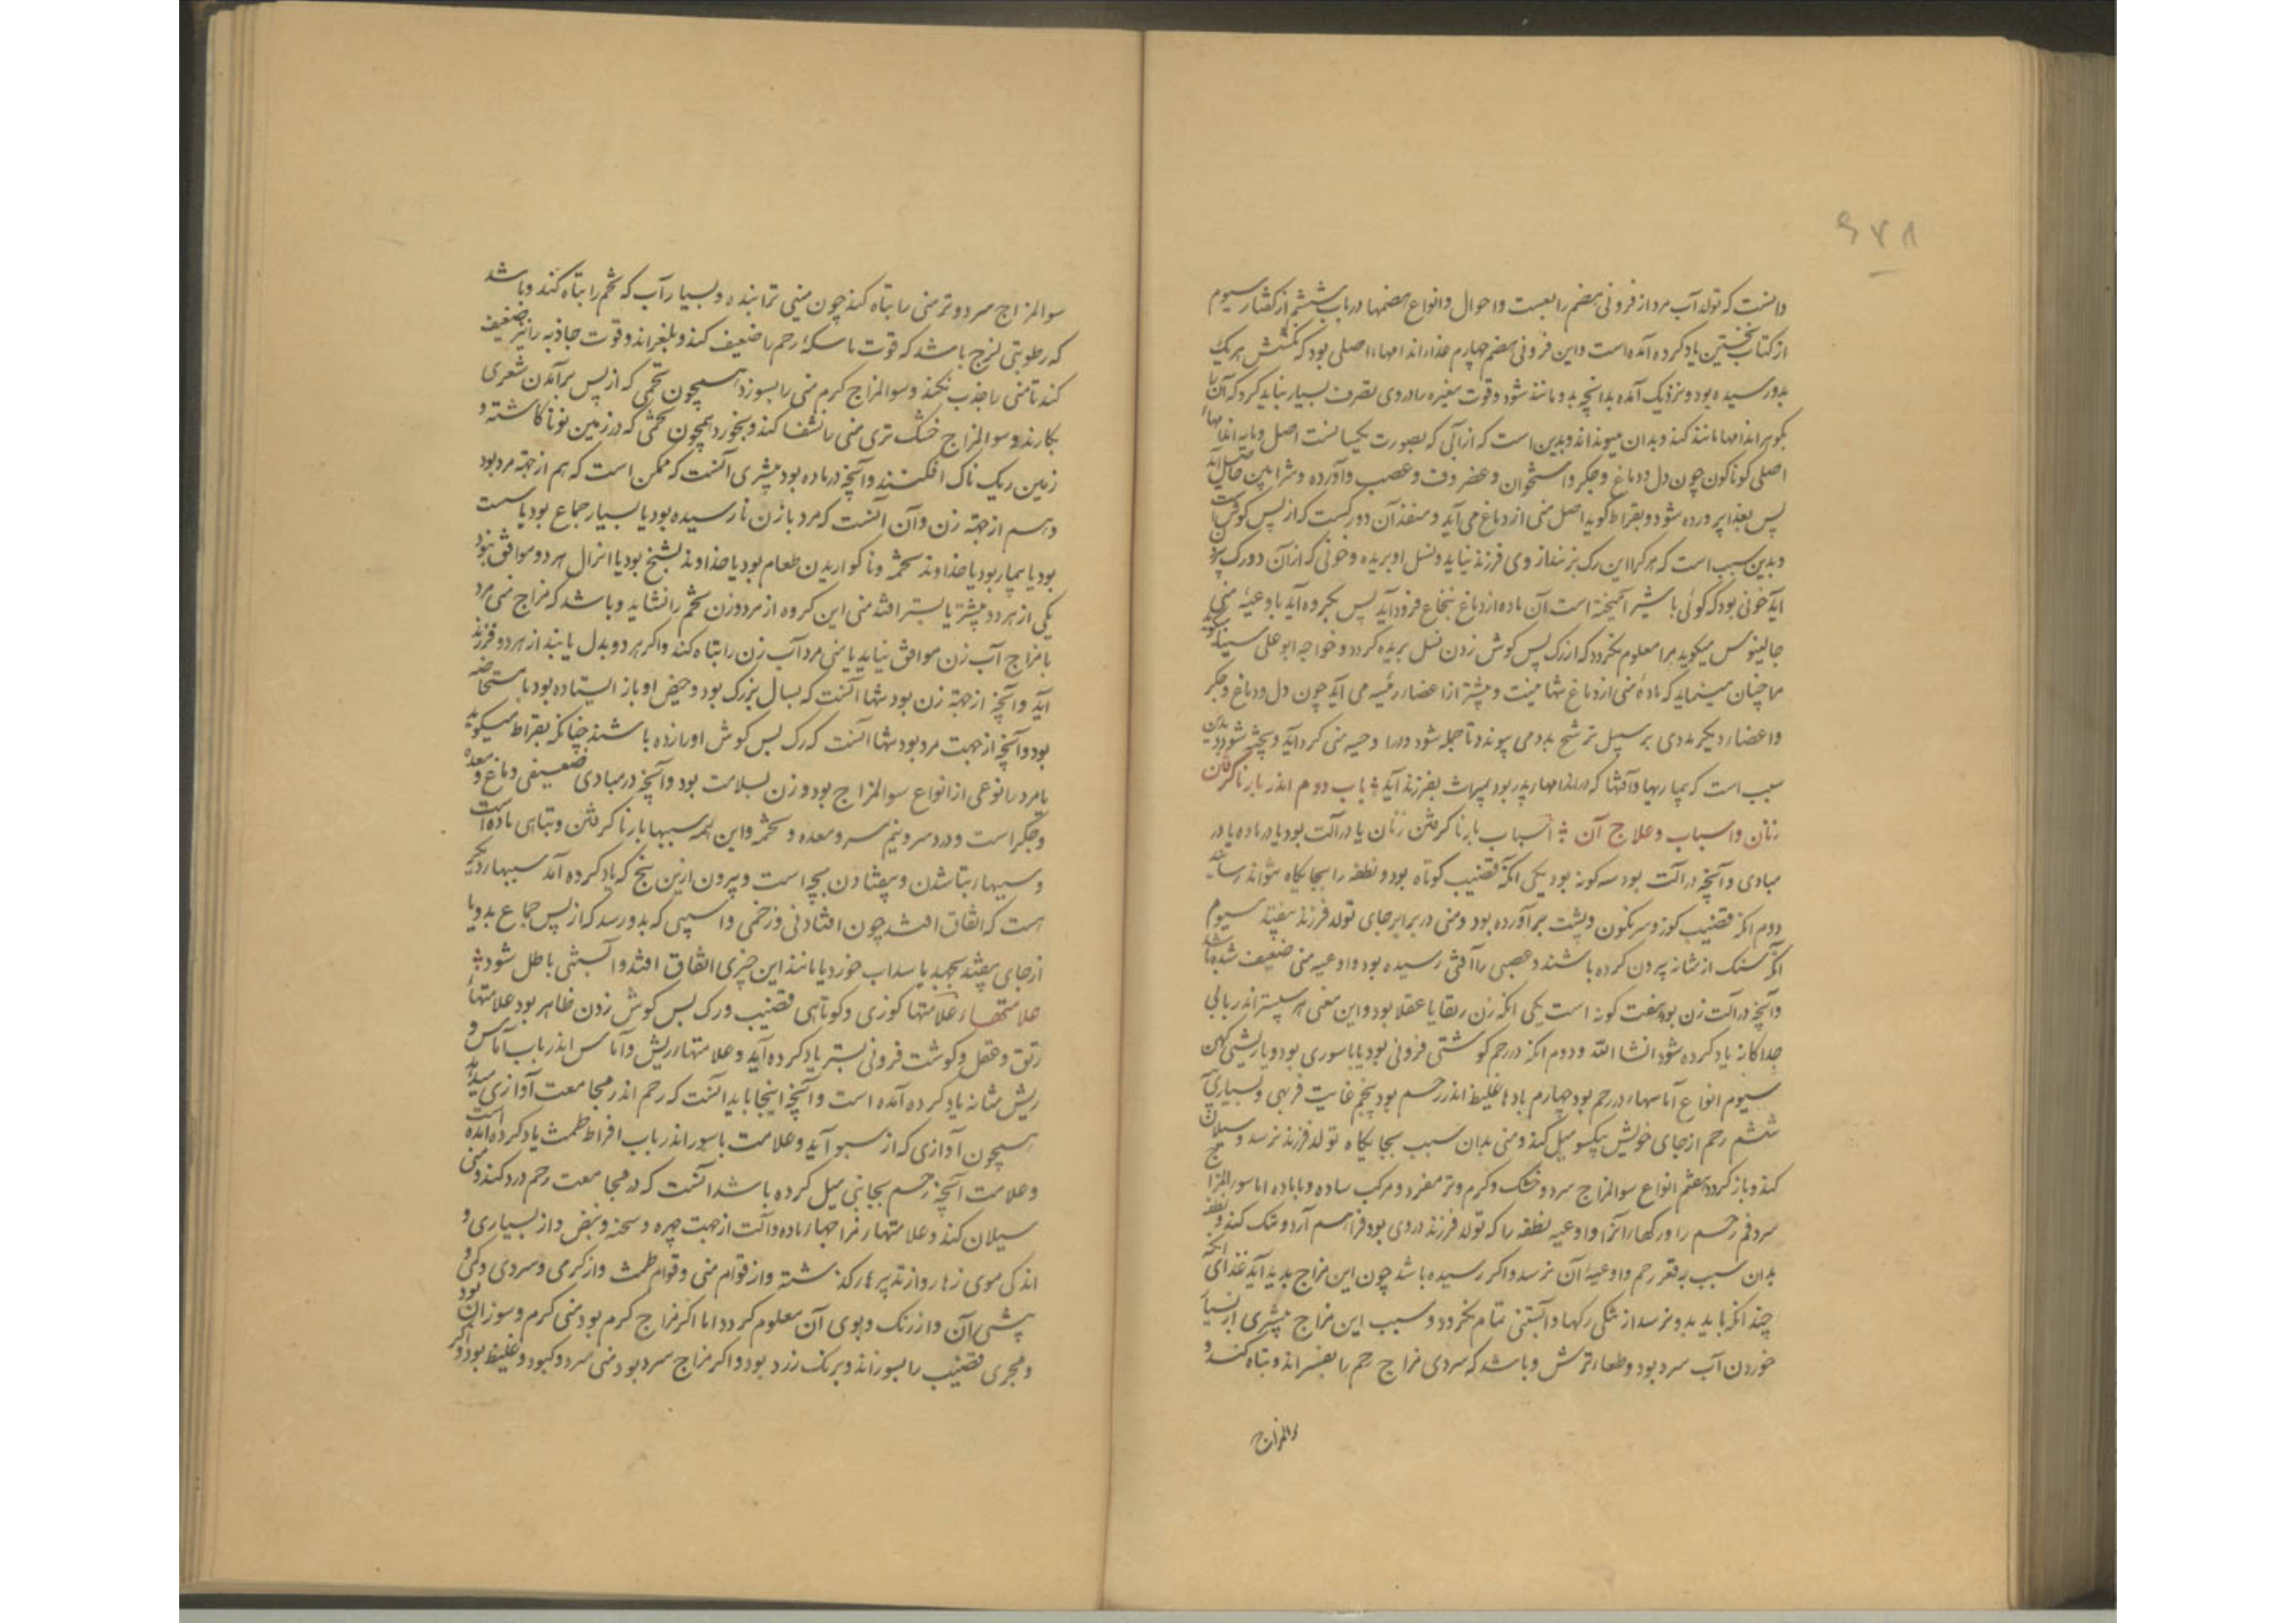 ۶۷۸
دانست که تولد آب مرد از فزونی هضم رابعست و احوال و انواع هضمها در باب ششم از گفتار سیوم
از کتاب نخستین یاد کرده آمده است و این فزونی هضم چهارم غذار اندامهاء اصلی بود که بکشش هریک
بدو رسیده بود و نزدیک آمده بدانچه بدو مانند شود و قوت مغیره را در وی تصرف بسیار نباید کرد که آن را
بگوهر اندامها مانند کند و بدان پیونداند و بدین است که از آبی که بصورت یکسانست اصل و مایه اندامهاء
اصلی کوناکون چون دل و دماغ و جکر و استخوان و غضروف و عصب و آورده و شرائین حاصل آید
پس بغذا پرورده شود و بقراط کوید اصل منی از دماغ می آید و منفذ آن دو رکست که از پس کوش است
و بدین سبب است که هرکرا این رک بزنند از وی فرزند نیاید و نسل او بریده و خونی که از آن دو رک
آید خونی بود که کوئی با شیر آمیخته است آن ماده از دماغ بنخاع فرود آید پس بگرده آید باوعیه منی
جالینوس میکوید مرا معلوم نکردد که از رک پس کوش زدن نسل بریده کردد و خواجه ابوعلی سینا کوید
ما چنان مینماید که ماده منی از دماغ تنها نیست و بیشتر از اعضاء رئیسه می آید چون دل و دماغ و جکر
و اعضاء دیگر مددی بر سبیل ترشح بدو می پیوندد تا جمله شود و در اوعیه منی کرد آید و پخته شود بدین
سبب است که بیماریها و آفتها که در اندامهاء پدر بود بمیراث بفرزند آید؛ باب دوم اندر بار ناکرفتن
زنان و اسباب و علاج آن ؛ اسباب بار ناکرفتن زنان یا در آلت بود یا در ماده یا در
مبادی و آنچه در آلت بود سه کونه بود یکی انکه قضیب کوتاه بود و نطفه را بجایگاه نتواند رسانید
دوم انکه قضیب کوز و سرنکون و پشت برآورده بود و منی در برابر جای تولد فرزند نیفتد سیوم
انکه سنک از مثانه بیرون کرده باشند و عصبی را آفتی رسیده بود و اوعیه منی ضعیف شده باشد
و آنچه در آلت زن بود هفت کونه است یکی انکه زن رتقا یا عفلا بود و این معنی هر سپستر اندر بابی
جداکانه یاد کرده شود انشا الله و دوم انکه در رحم کوشتی فزونی بود یا باسوری بود یا ریشی کهن
سیوم انواع آماسهاء در رحم بود چهارم بادهاء غلیظ اندر رحم بود پنجم غایت فربهی و بسیاری
ششم رحم از جای خویش بیکسو میل کند و منی بدان سبب بجایکاه تولد فرزند نرسد و سیلان
کند و باز کردد هفتم انواع سوالمزاج سرد و خشک و کرم و تر مفرد و مرکب ساده و با ماده اما سوالمزاج
سرد فم رحم را و رکهاء آنرا و اوعیه نطفه را که تولد فرزند در وی بود فراهم آرد و تنک کند و نطفه
بدان سبب بقعر رحم و اوعیه آن نرسد و اکر رسیده باشد چون این مزاج پدید آید غذای انکه
چندانکه باید بدو نرسد از تنکی رکها و آبستنی تمام نکردد و سبب این مزاج بیشتری از بسیار
خوردن آب سرد بود و طعام ترش و باشد که سردی مزاج رحم را بفسراند و تباه کند و
والمزاج
سوالمزاج سرد و تر منی را تباه کند چون زمینی ترابنده و بسیار آب که تخم را تباه کند و باشد
که رطوبتی لزج باشد که قوت ماسکه رحم را ضعیف کند و بلغزاند و قوت جاذبه را نیز ضعیف
کند تا منی را جذب نکند و سوالمزاج کرم منی را بسوزد همچون تخمی که از پس برآمدن شعری
بکارند و سوالمزاج خشک تری منی را نشف کند و بخورد همچون تخمی که در زمین نو ناکاشته و
زمین ریک ناک افکنند و آنچه در ماده بود بیشتری آنست که ممکن است که هم از جهة مرد بود
و هم از جهة زن و آن آنست که مرد با زن نارسیده بود یا بسیار جماع بود یا مست
بود یا بیمار بود یا خداوند تخمه و ناکواریدن طعام بود یا خداوند تشنج بود یا انزال هر دو موافق نبود
یکی از هر دو پیشتر یا پستر افتد منی این کروه از مرد و زن تخم را نشاید و باشد که مزاج منی مرد
با مزاج آب زن موافق نیاید یا منی مرد آب زن را تباه کند و اکر هر دو بدل یابند از هر دو فرزند
آید و آنچه از جهة زن بود تنها آنست که بسال بزرک بود و حیض او باز ایستاده بود یا مستحاضه
بود و آنچه از جهت مرد بود تنها آنست که رک پس کوش او را زده باشند چنانکه بقراط میکوید
یا مرد را نوعی از انواع سوالمزاج بود و زن بسلامت بود و آنچه در مبادی ضعیفی دماغ و معده
و جکر است و درد سر و نیم سر و معده و تخمه و این همه سببهاء بار ناکرفتن و تباهی ماده است
و سببهاء تباه شدن و بیفتادن بچه است و بیرون ازین پنج که یاد کرده آمد سببهاء دیگر
است که اتفاق افتد چون افتادنی و زخمی و آسیبی که بدو رسد که از پس جماع بدو یا
از جای بیفتد بجهد یا سداب خورد یا مانند این چیزی اتفاق افتد و آبستنی باطل شود؛
علامتهاء علامتها کوزی و کوتاهی قضیب و رک پس کوش زدن ظاهر بود علامتهاء
رتق و عفل و کوشت فزونی پستر یاد کرده آید و علامتهاء ریش و آماس اندر باب آماس و
ریش مثانه یاد کرده آمده است و آنچه اینجا باید آنست که رحم اندر مجامعت آوازی میدهد
همچون آوازی که از سبو آید و علامت باسور اندر باب افراط طمث یاد کرده آمده است
و علامت آنچه رحم بجانبی میل کرده باشد آنست که در مجامعت رحم درد کند و منی
سیلان کند و علامتهاء مزاجهاء ماده و آلت از جهت چهره و سحنه و نبض و از بسیاری و
اندکی موی زهار و از تدبیرهاء گذشته و از قوام منی و قوام طمث و از کرمی و سردی و کمی و
بیشی آن و از رنک و بوی آن معلوم کردد اما اکر مزاج کرم بود منی کرم و سوزان بود
و مجری قضیب را بسوزاند و برنک زرد بود و اکر مزاج سرد بود منی سرد و کبود و غلیظ بود و اکر